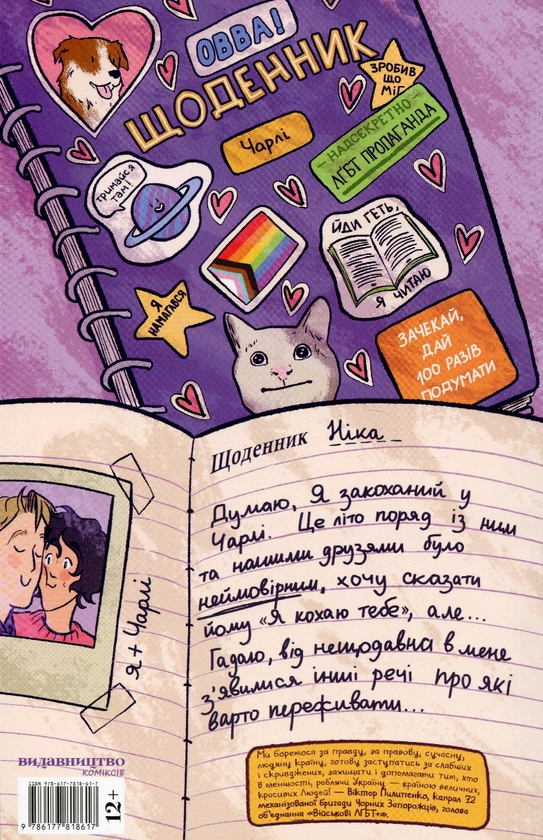 ОВВА!
ЩОДЕННИК
ЗРОБИВ
ЩО
МІГ
Чарлі
НАДСЕКРЕТНО
ЛГБТ ПРОПАГАНДА
ТРИМАЙСЯ
ТАМ!
ЙДИ ГЕТЬ,
Я ЧИТАЮ
Я
НАМАГАВСЯ
ЗАЧЕКАЙ,
ДАЙ
100 РАЗІВ
ПОДУМАТИ
Щоденник Ніка
Думаю, Я закоханий у
Чарлі. Це літо поряд із ним
та нашими друзями було
неймовірним, хочу сказати
йому «Я кохаю тебе», але...
Гадаю, від нещодавна в мене
з'явилися інші речі про які
варто переживати...
Я + Чарлі
Ми боремося за правду, за правову, сучасну,
людяну країну, готову заступатись за слабших
і скривджених, захищати і допомагати тим, хто
в меншості, роблячи Україну — країною величних,
красивих Людей! — Віктор Пилипенко, капрал 72
механізованої бригади Чорних Запорожців, голова
об'єднання «Військові ЛГБТ+».
ВИДАВНИЦТВО
КОМІКСІВ
ISBN 978-617-7818-61-7
9 786177 818617
12+